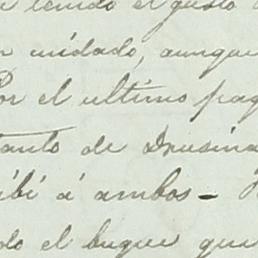 tenido el gusto
cuidado, aunque
Por el ultimo pag
tanto de Drusina
ibi á ambos -
do el buque que